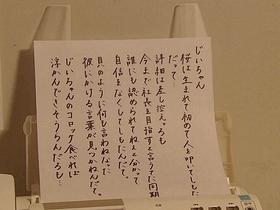 じいちゃん
俺は生まれて初めて人を叩いてしもた
だって…
詳細は差し控えるも
今まで社長を目指すと言うてた同期
誰にも認められてねぇと分かって
自信をなくしてしもたんだって。
貝のように何も言わねなって
彼にかける言葉が見つかねんだって。
じいちゃんのコロッケ食べれば
浮かんできそうなんだろも…